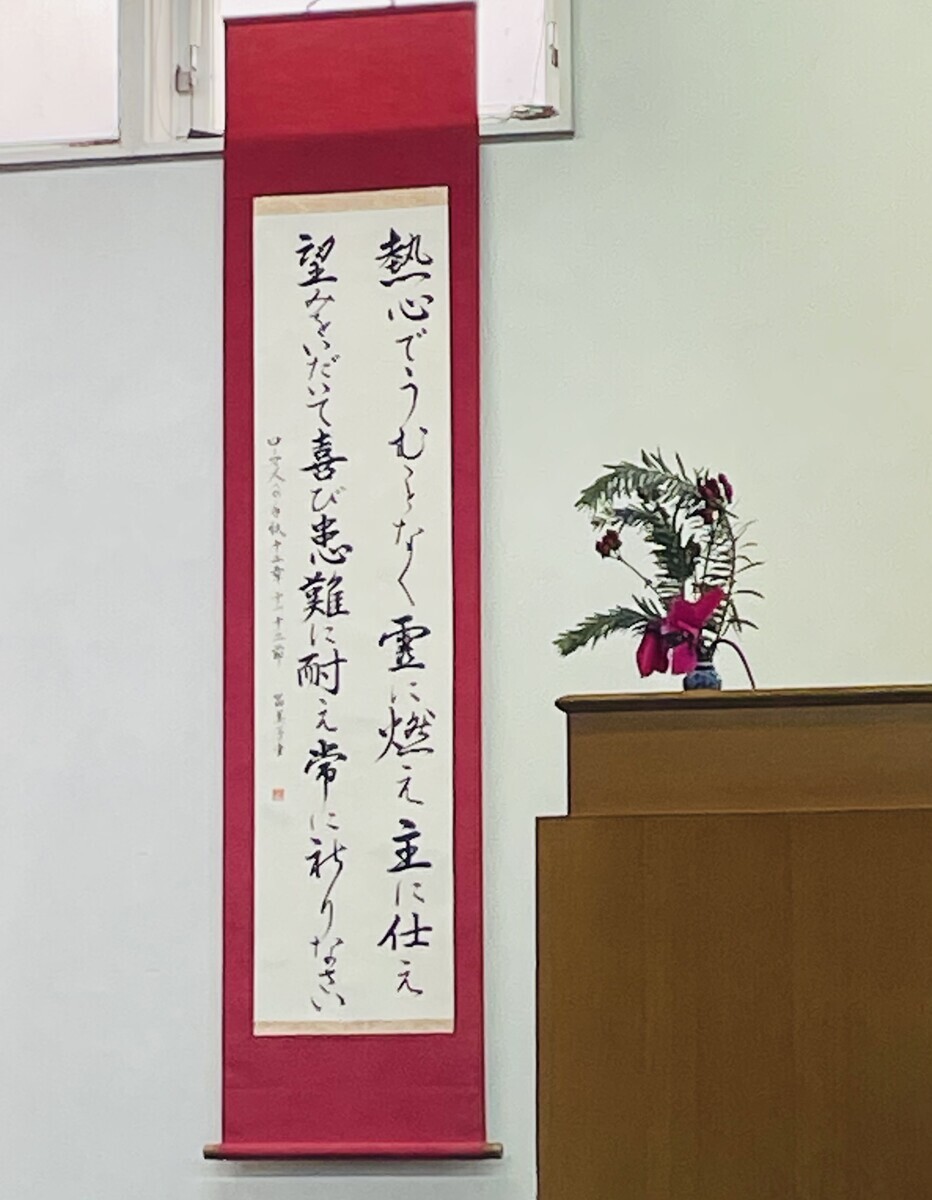 熱心でうむことなく霊に燃え主に仕え
望みをいだいて喜び患難に耐え常に祈りなさい
ローマ人への手紙十二章十一十二節